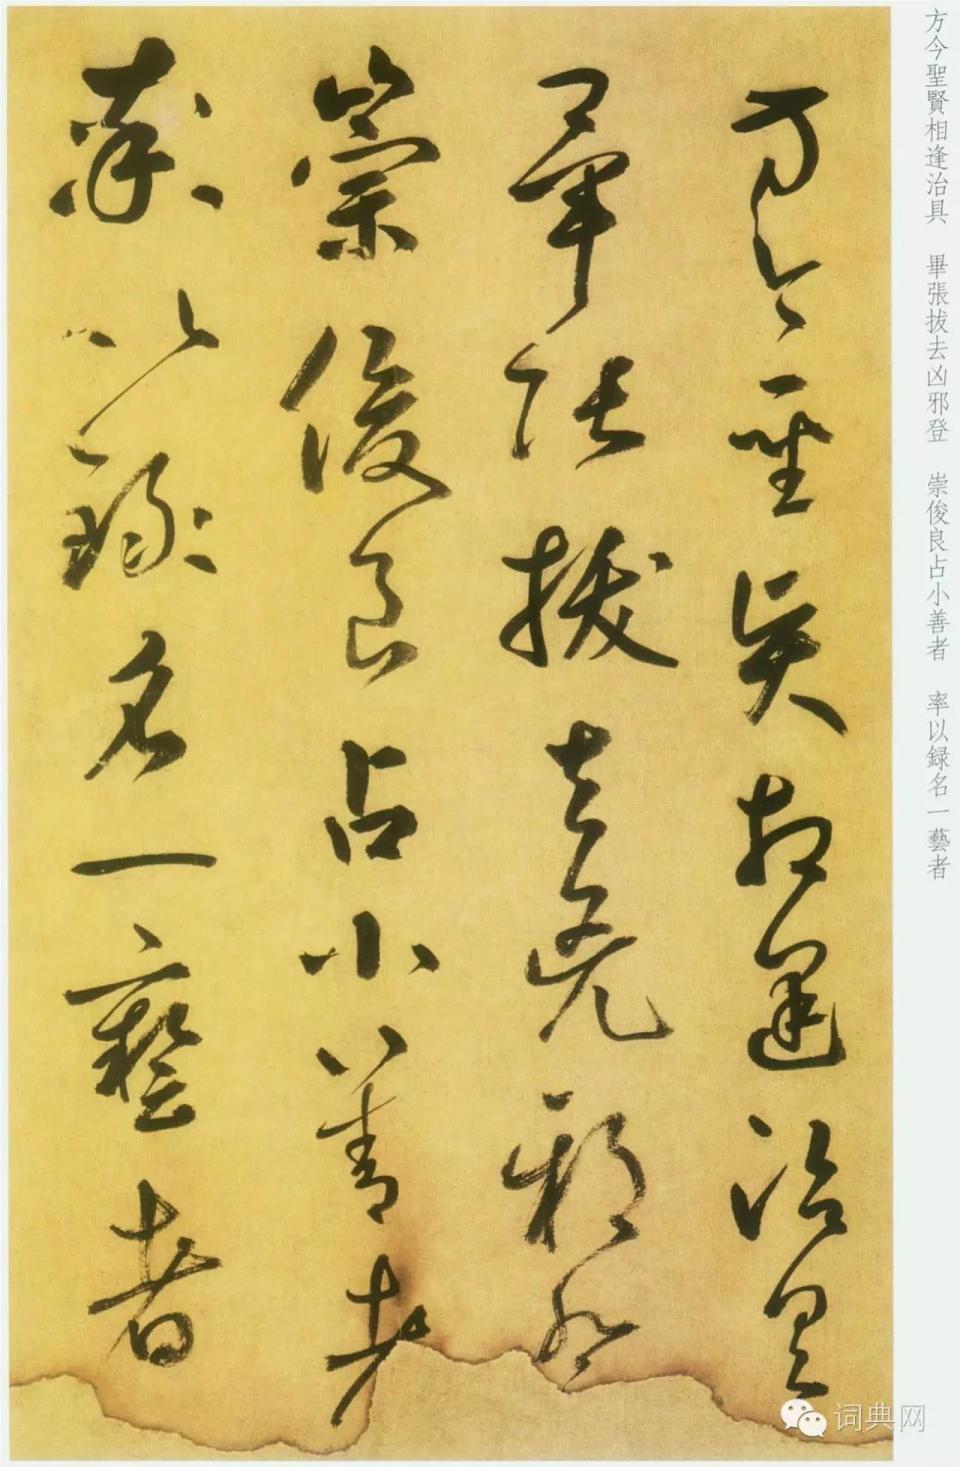 方今聖賢相逢治具　畢張拔去凶邪登　崇俊良占小善者　率以録名一藝者
方今聖賢相逢治具
畢張拔去兇邪登
崇俊良占小善者
率以録名一藝者
词典网